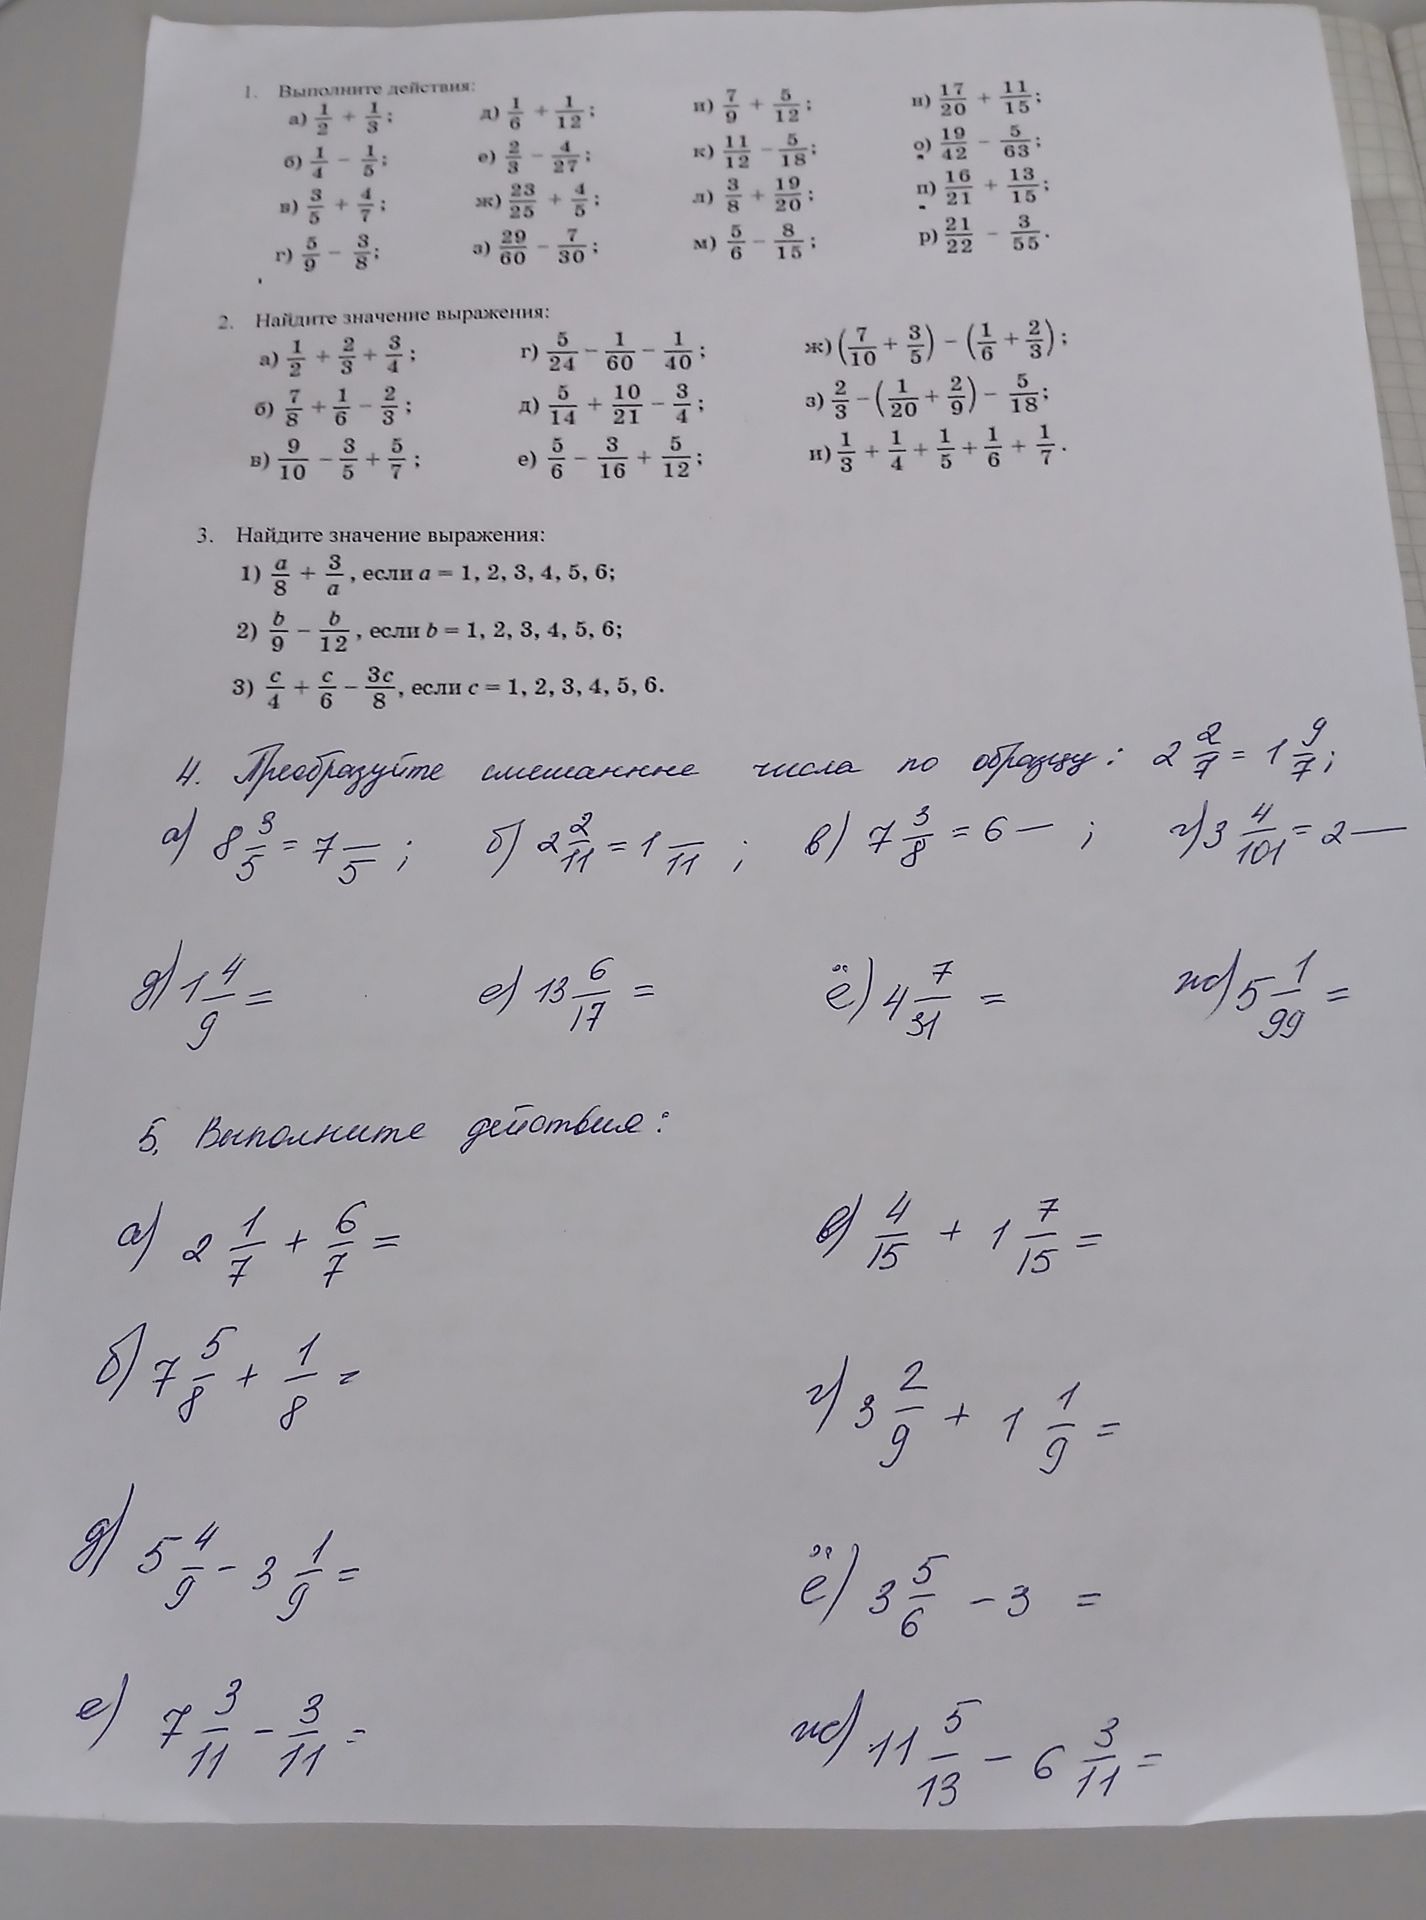 1. Выполните действия:
а) 1/2 + 1/3; д) 1/6 + 1/12; и) 7/9 + 5/12; н) 17/20 + 11/15;
б) 1/4 − 1/5; е) 2/3 − 4/27; к) 11/12 − 5/18; о) 19/42 − 5/63;
в) 3/5 + 4/7; ж) 23/25 + 4/5; л) 3/8 + 19/20; п) 16/21 + 13/15;
г) 5/9 − 3/8; з) 29/60 − 7/30; м) 5/6 − 8/15; р) 21/22 − 3/55.
2. Найдите значение выражения:
а) 1/2 + 2/3 + 3/4; г) 5/24 − 1/60 − 1/40; ж) (7/10 + 3/5) − (1/6 + 2/3);
б) 7/8 + 1/6 − 2/3; д) 5/14 + 10/21 − 3/4; з) 2/3 − (1/20 + 2/9) − 5/18;
в) 9/10 − 3/5 + 5/7; е) 5/6 − 3/16 + 5/12; и) 1/3 + 1/4 + 1/5 + 1/6 + 1/7.
3. Найдите значение выражения:
1) a/8 + 3/a, если a = 1, 2, 3, 4, 5, 6;
2) b/9 − b/12, если b = 1, 2, 3, 4, 5, 6;
3) c/4 + c/6 − 3c/8, если c = 1, 2, 3, 4, 5, 6.
4. Преобразуйте смешанные числа по образцу: 2 2/7 = 1 9/7;
а) 8 3/5 = 7 —/5; б) 2 2/11 = 1 —/11; в) 7 3/8 = 6 — ; г) 3 4/101 = 2 —
д) 1 4/9 = е) 13 6/17 = ё) 4 7/31 = ж) 5 1/99 =
5. Выполните действия:
а) 2 1/7 + 6/7 = в) 4/15 + 1 7/15 =
б) 7 5/8 + 1/8 = г) 3 2/9 + 1 1/9 =
д) 5 4/9 − 3 1/9 = ё) 3 5/6 − 3 =
е) 7 3/11 − 3/11 = ж) 11 5/13 − 6 3/11 =